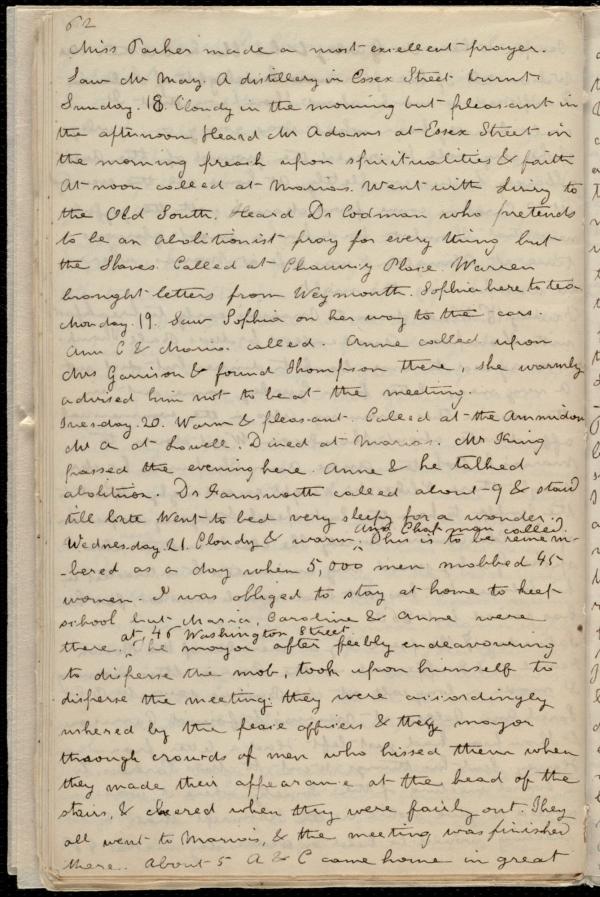 62
Miss Parker made a most excellent prayer.
Saw Mr May. A distillery in Essex Street burnt.
Sunday. 18. Cloudy in the morning but pleasant in
the afternoon Heard Mr Adams at Essex Street in
the morning preach upon spiritualities & faith
At noon called at Marias. Went with to
the Old South. Heard Dr Codman who pretends
to be an abolitionist pray for every thing but
the Slaves. Called at Chauncy Place. Warren
brought letters from Weymouth. Sophia here to tea
Monday. 19. Saw Sophia on her way to the cars.
Ann C & Maria. called. Anne called upon
Mrs Garrison & found Thompson there, she warmly
advised him not to be at the meeting.
Tuesday. 20. Warm & pleasant. Called at the Ammidon
Mr A at Lowell. Dined at Marias. Mr King
passed the evening here. Anne & he talked
abolition. Dr Farnsworth called about 9 & staid
till late Went to bed very sleepy for a wonder.
Ann Chapman called.
Wednesday. 21. Cloudy & warm. This is to be remem-
-bered as a day when 5,000 men mobbed 45
women. I was obliged to stay at home to keep
school but Maria, Caroline & Anne were
at, 46 Washington Street
there. The mayor after feebly endeavouring
to disperse the mob, took upon himself to
disperse the meeting; they were accordingly
ushered by the peace officers & the mayor
through crowds of men who hissed them when
they made their appearance at the head of the
stairs, & cheered when they were fairly out. They
all went to Marias, & the meeting was finished
there. About 5 A & C came home in great